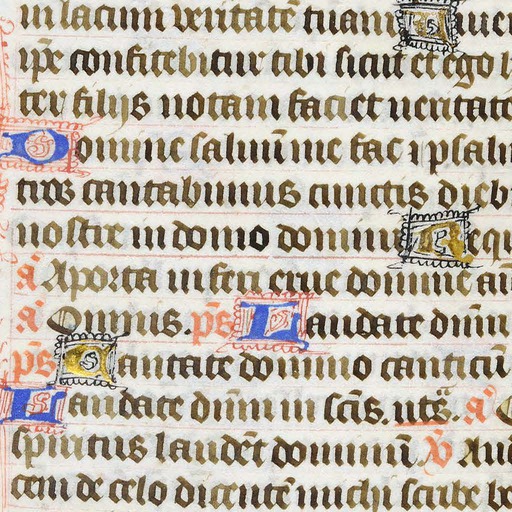 in lacum veritatē tuam Q uiue
ip̄e confitebitur tibi sicut et ego h
ter filijs notam faciet ueritate
Domine saluū me fac ⁊ psalm
tuos cantabimus cunctis dieb
nostre in domo domini Requ
a᷑ Aporta inferi erue domine an
a᷑ Omnis. ps̄ Laudate dn̄m
ps̄ Cantate domino canticū
Laudate dn̄m in sc̄is. uts̄. a᷑ O
spiritus laudēt dominū. v̄ Aud
cem de celo dicentē michi scribe be